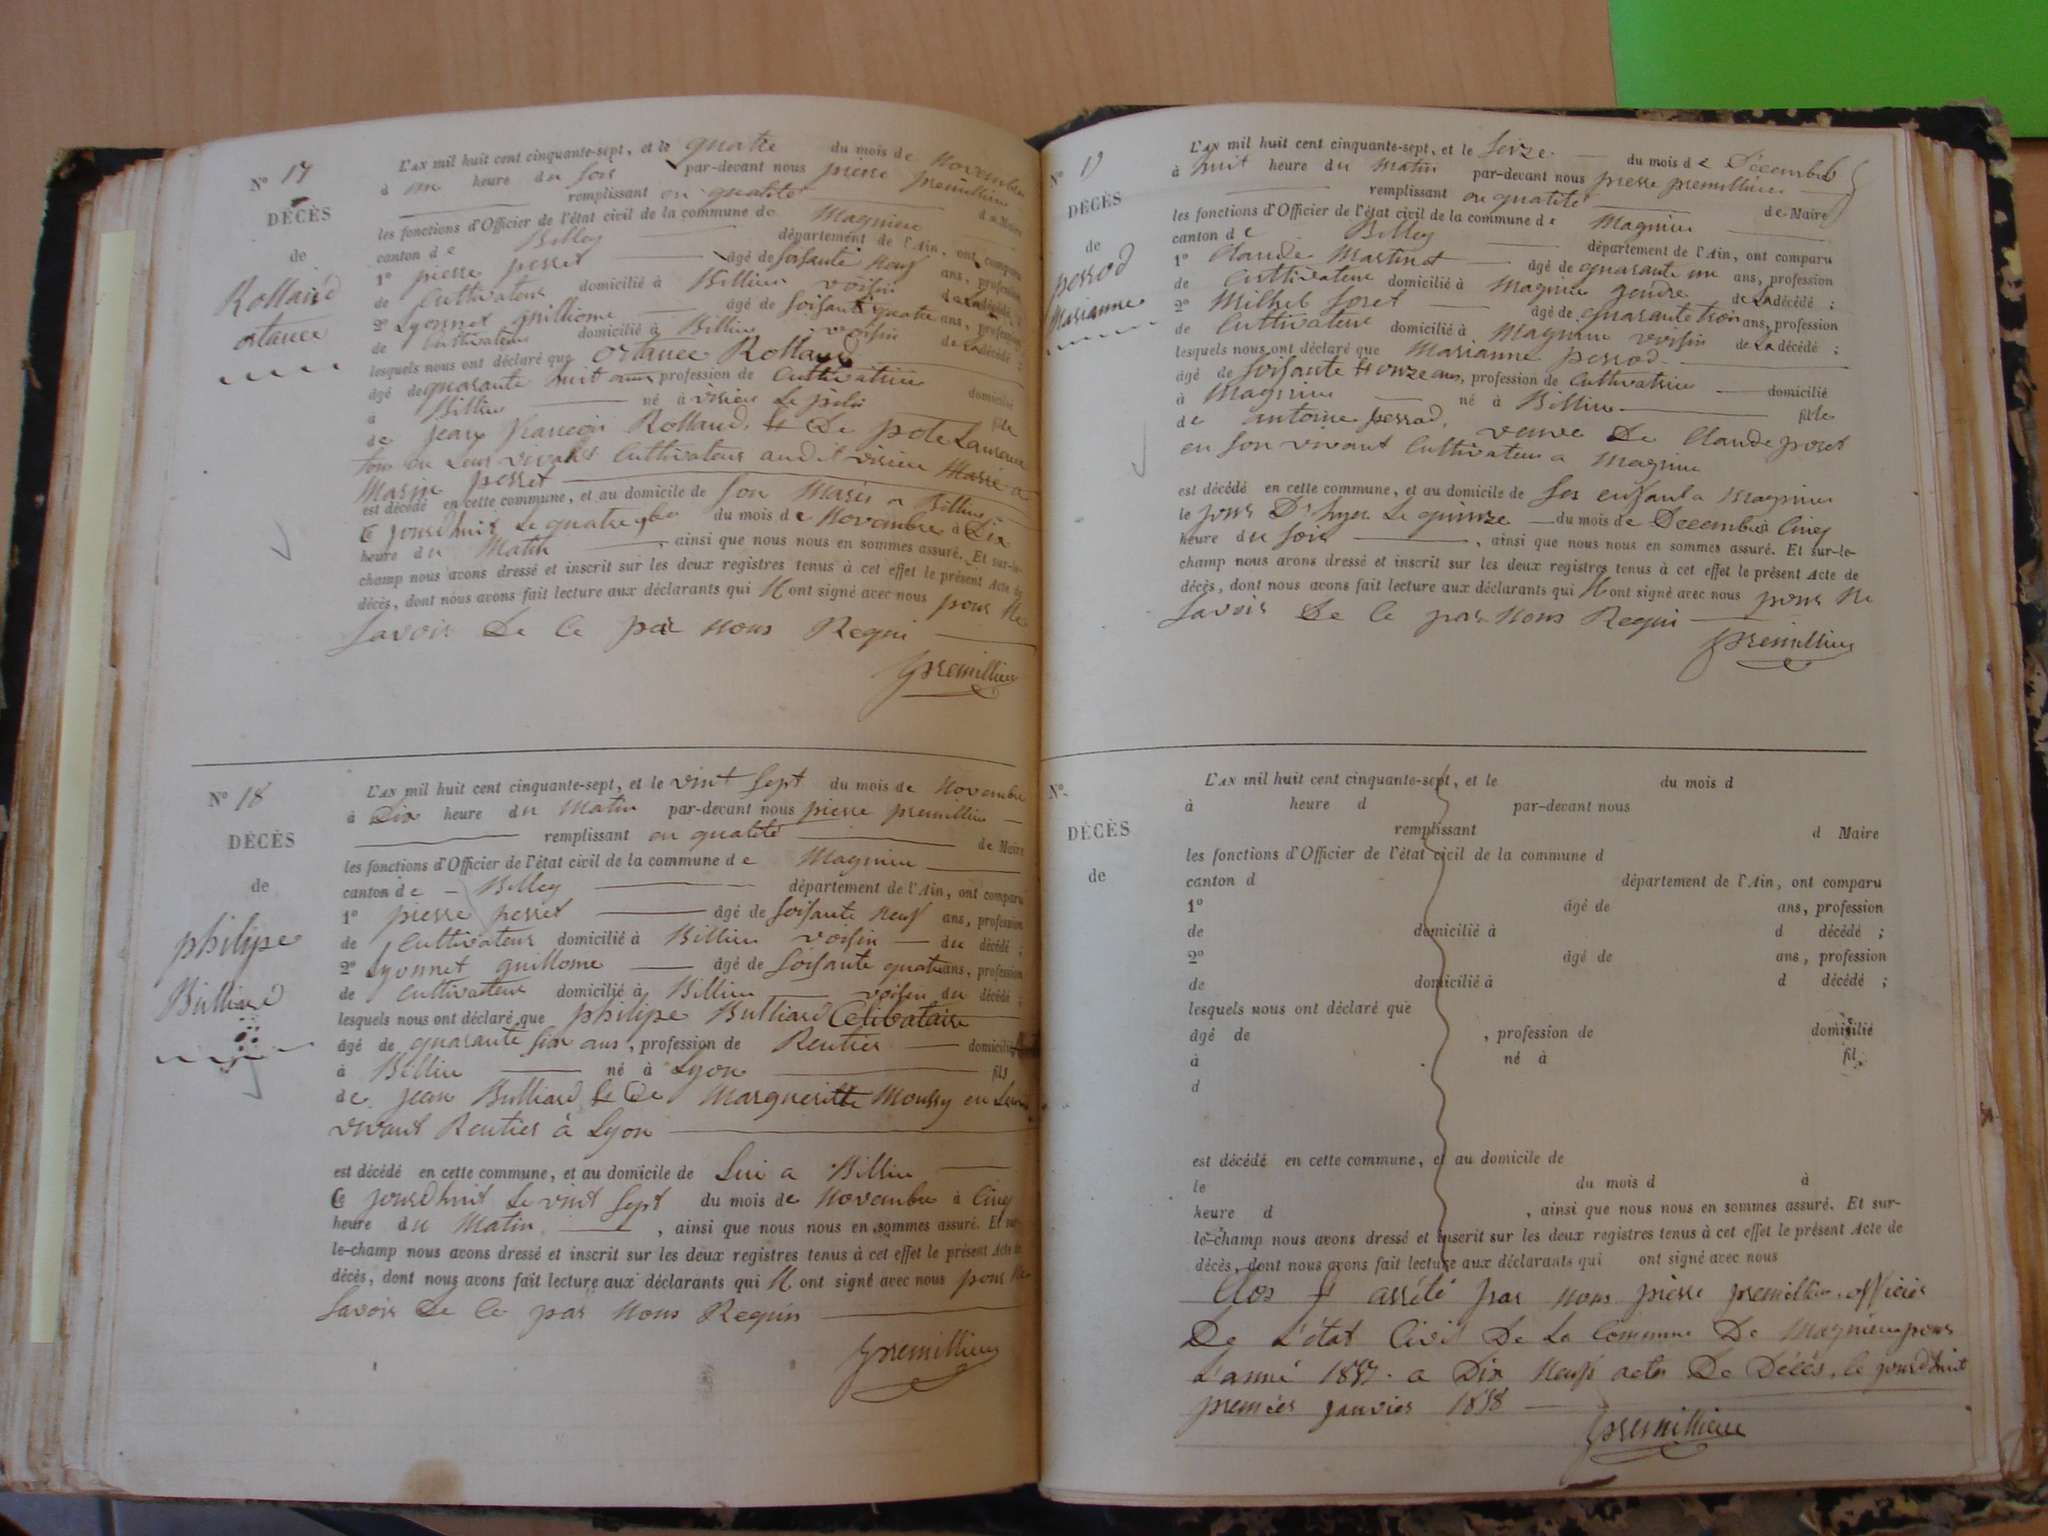 N° 17
DÉCÈS
de
Rolland
ortance
L'AN mil huit cent cinquante-sept, et le quatre du mois de novembre
à un heure du soir par-devant nous pierre premillieu
remplissant en qualité de Maire
les fonctions d'Officier de l'état civil de la commune de Magnieu
canton de Billey département de l'Ain, ont comparu
1° pierre perret âgé de soisante neuf ans, profession
de Cultivateur domicilié à Billieu voisin de La décédé ;
2° Lyonnet guillome âgé de soisante quatre ans, profession
de Cultivateur domicilié à Billieu voisin de La décédé ;
lesquels nous ont déclaré que ortance Rolland
âgé de quarante huit ans profession de Cultivatrice domicilié
à Billieu né à virieu Le petit fille
de jean françois Rolland, et De
tous en Leur vivant Cultivateur audit virieu Marié a
Marin perret
est décédé en cette commune, et au domicile de son Maris a Billieu
Ce jourdhuit Le quatre du mois de Novembre à Dix
heure du Matin, ainsi que nous nous en sommes assuré. Et sur-le-
champ nous avons dressé et inscrit sur les deux registres tenus à cet effet le présent Acte de
décès, dont nous avons fait lecture aux déclarants qui N ont signé avec nous pour Ne
Savoir De Ce par nous Requi
premillieu
N° 18
DÉCÈS
de
philipe
Bulliard
L'AN mil huit cent cinquante-sept, et le vint sept du mois de Novembre
à Dix heure du Matin par-devant nous pierre premillieu
remplissant en qualité de Maire
les fonctions d'Officier de l'état civil de la commune de Magnieu
canton de Billey département de l'Ain, ont comparu
1° pierre perret âgé de soisante neuf ans, profession
de Cultivateur domicilié à Billieu voisin du décédé ;
2° Lyonnet guillome âgé de soisante quatre ans, profession
de Cultivateur domicilié à Billieu voisin du décédé ;
lesquels nous ont déclaré que philipe Bulliard Celibataire
âgé de quarante six ans, profession de Rentier domicilié
à Billieu né à Lyon fils
de jean Bulliard et De Margueritte Moussy en Leur
vivant Rentier à Lyon
est décédé en cette commune, et au domicile de Lui a Billieu
Ce jourdhuit Le vint sept du mois de Novembre à Cinq
heure du Matin, ainsi que nous nous en sommes assuré. Et sur-
le-champ nous avons dressé et inscrit sur les deux registres tenus à cet effet le présent Acte de
décès, dont nous avons fait lecture aux déclarants qui N ont signé avec nous pour Ne
Savoir De Ce par nous Requis
premillieu
N° 19
DÉCÈS
de
perrod
Marianne
L'AN mil huit cent cinquante-sept, et le seize du mois de Décembre
à huit heure du matin par-devant nous pierre premillieu
remplissant en qualité de Maire
les fonctions d'Officier de l'état civil de la commune de Magnieu
canton de Billey département de l'Ain, ont comparu
1° Claude Martinet âgé de quarante un ans, profession
de Cultivateur domicilié à Magnieu gendre de La décédé ;
2° Milhel Soret âgé de quarante trois ans, profession
de Cultivateur domicilié à Magnieu voisin de La décédé ;
lesquels nous ont déclaré que Marianne perrod
âgé de soisante et onze ans, profession de Cultivatrice domicilié
à Magnieu né à Billieu fille
de antoine perrod, veuve De Claude poret
en son vivant Cultivateur a Magnieu
est décédé en cette commune, et au domicile de ses enfant a Magnieu
le jour D'hyer Le quinze du mois de Décembre à Cinq
heure du soir, ainsi que nous nous en sommes assuré. Et sur-le-
champ nous avons dressé et inscrit sur les deux registres tenus à cet effet le présent Acte de
décès, dont nous avons fait lecture aux déclarants qui N ont signé avec nous pour Ne
Savoir De Ce par nous Requi
premillieu
N°
DÉCÈS
de
L'AN mil huit cent cinquante-sept, et le du mois d
à heure d par-devant nous
remplissant d Maire
les fonctions d'Officier de l'état civil de la commune d
canton d département de l'Ain, ont comparu
1° âgé de ans, profession
de domicilié à d décédé ;
2° âgé de ans, profession
de domicilié à d décédé ;
lesquels nous ont déclaré que
âgé de , profession de domicilié
à né à fil
d
est décédé en cette commune, et au domicile de
le du mois d à
heure d , ainsi que nous nous en sommes assuré. Et sur-
le-champ nous avons dressé et inscrit sur les deux registres tenus à cet effet le présent Acte de
décès, dont nous avons fait lecture aux déclarants qui ont signé avec nous
Clos et arrété par nous pierre premillieu officier
De L'état Civil De La Commune De Magnieu pour
L'anné 1857. a Dix neuf actes De Décès, le jourdhuit
premier janvier 1858
premillieu